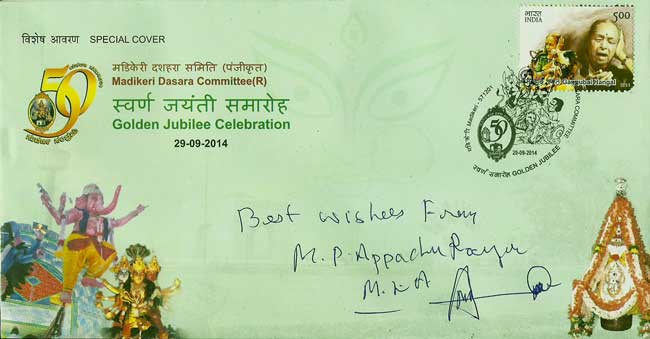 विशेष आवरण SPECIAL COVER
50
मडिकेरी दशहरा समिति (पंजीकृत)
Madikeri Dasara Committee(R)
स्वर्ण जयंती समारोह
Golden Jubilee Celebration
29-09-2014
भारत
INDIA
5.00
Gangubai Hangal
Madikeri - 571201
DASARA COMMITTEE
50
29-09-2014
स्वर्ण समारोह GOLDEN JUBILEE
Best wishes From
M. P. Appachu Ranjan
M.L.A